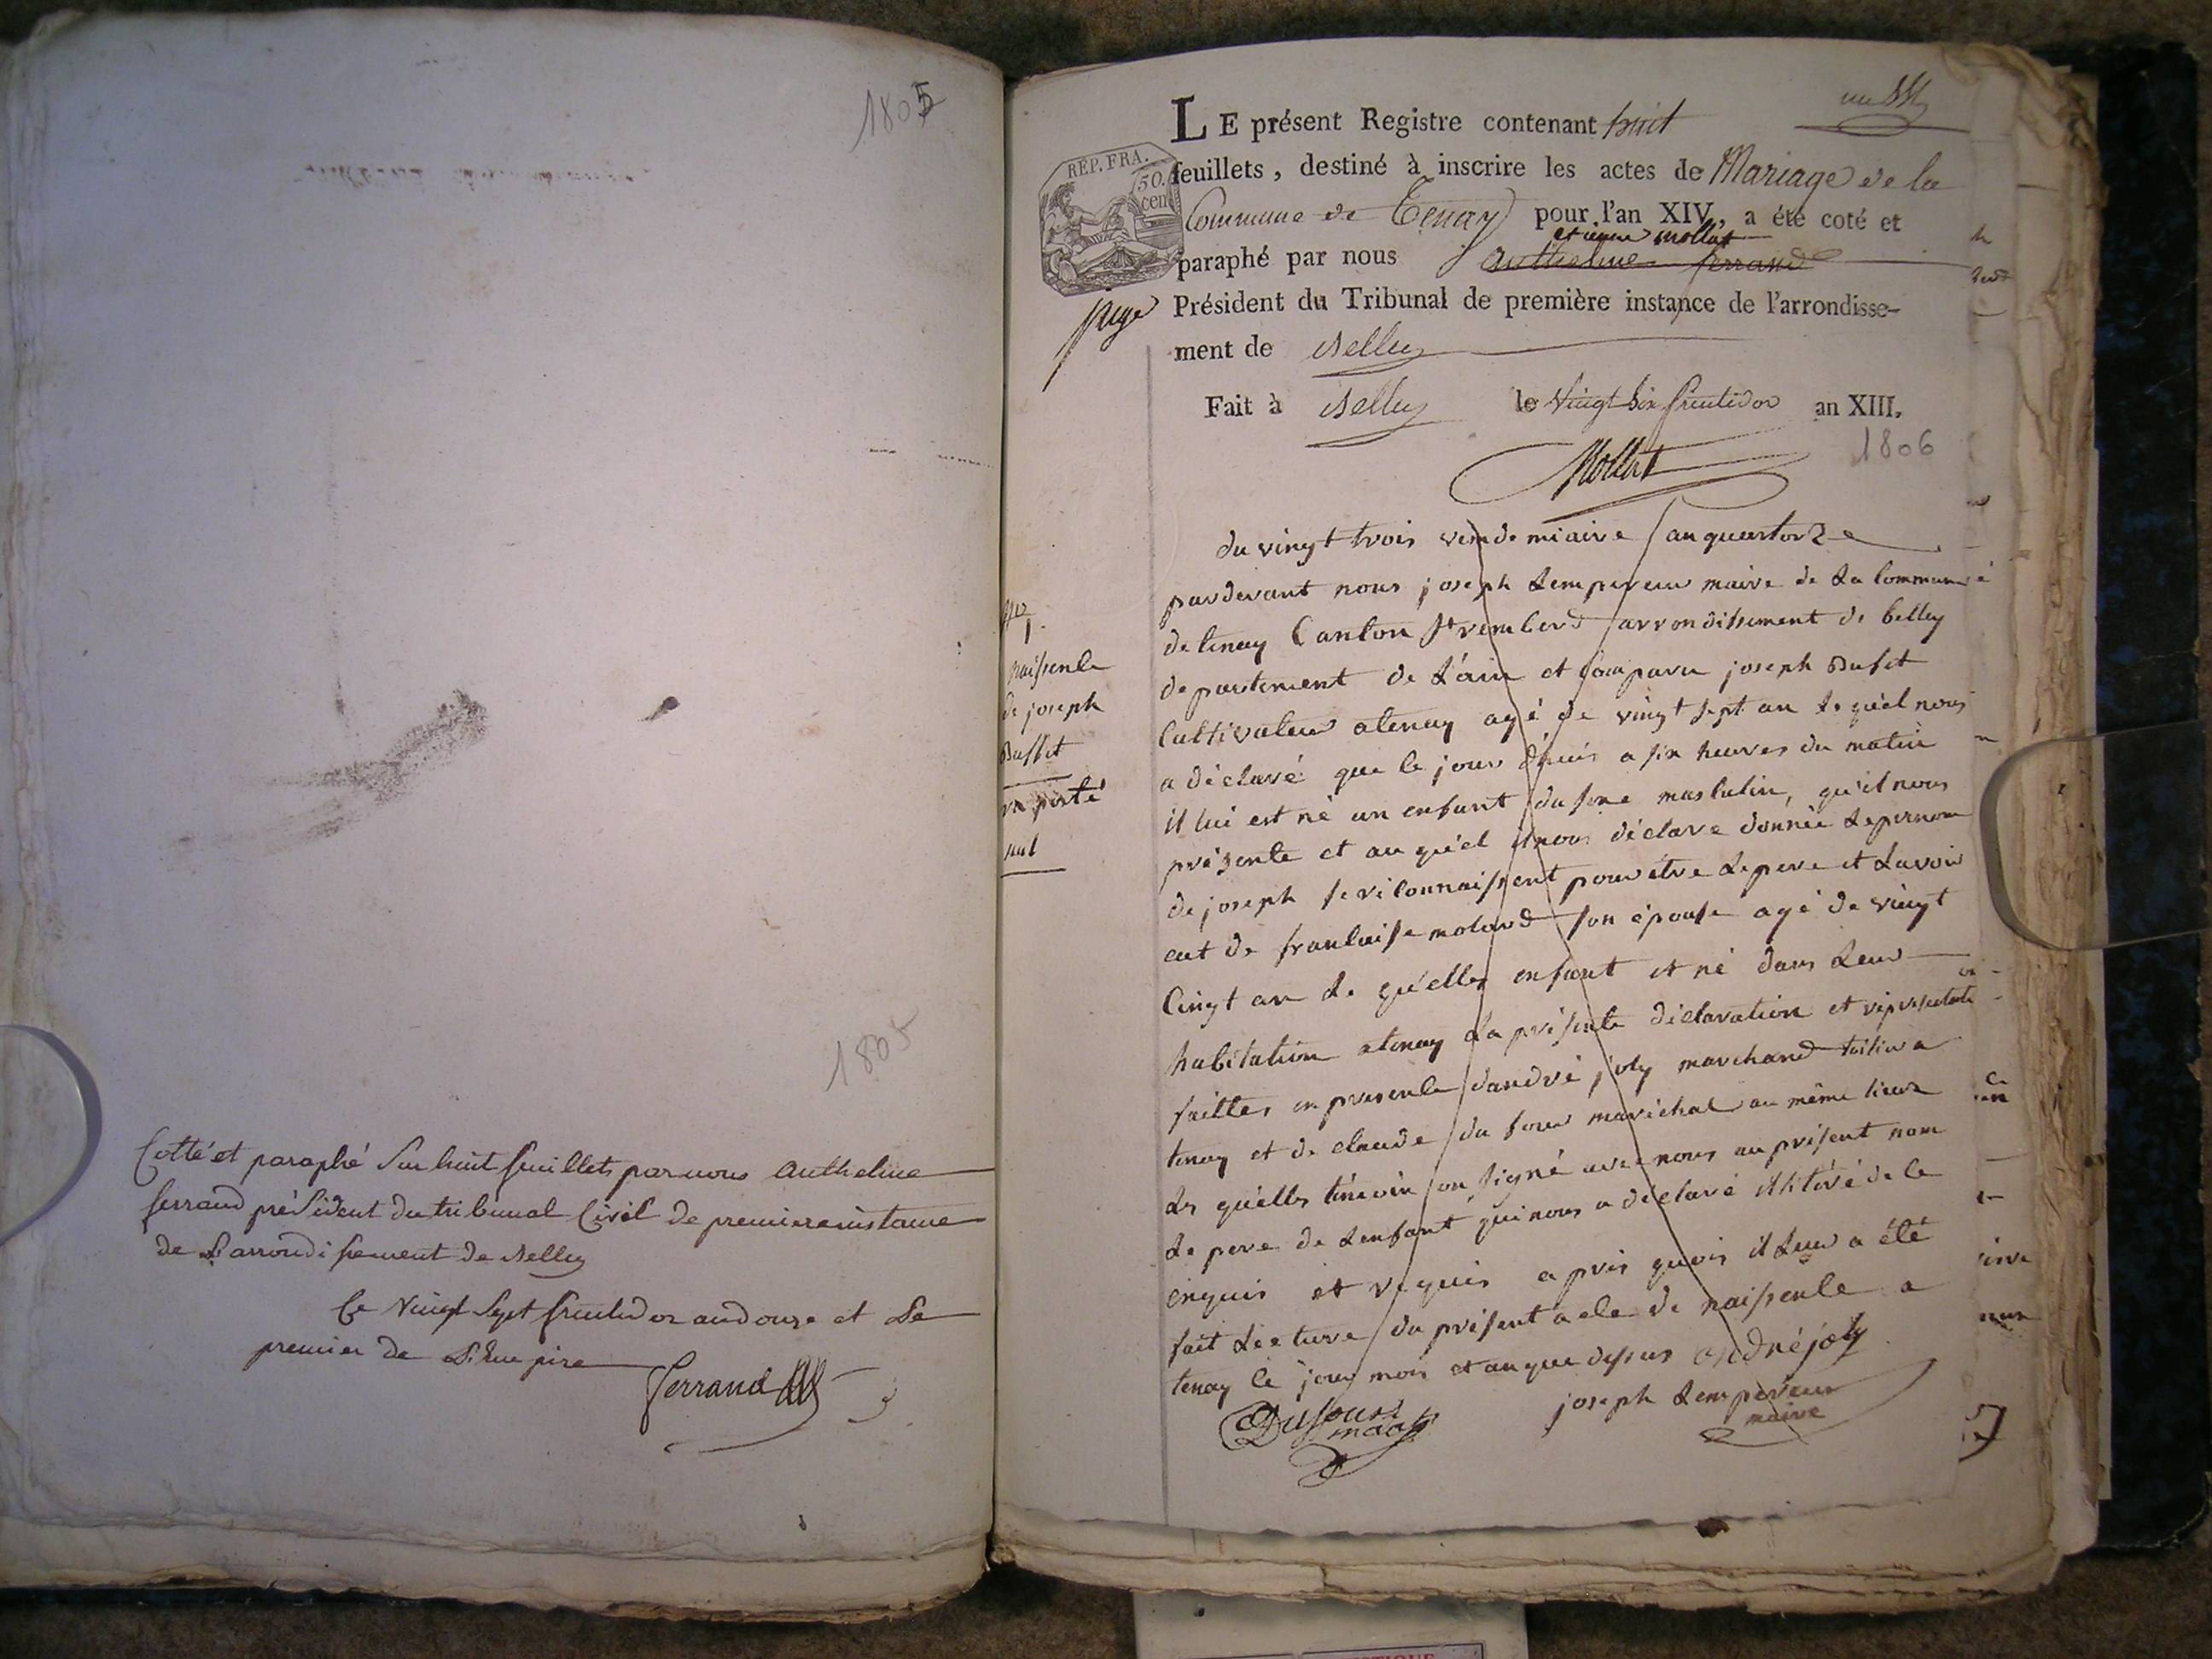 1805
1805
Cotté et paraphé Sur huit feuillets par nous anthelme
ferrand président du tribunal Civil de premiere instance
de L'arrondissement de Belley
Ce Vingt Sept fructidor an douze et Le
premier de L'Empire
ferrand
LE présent Registre contenant huit
feuillets, destiné à inscrire les actes de Mariage de la
REP. FRA.
50.
cen
Commune de Tenay pour l'an XIV, a été coté et
etienne mollat
paraphé par nous anthelme ferrand
juge Président du Tribunal de première instance de l'arrondisse-
ment de Belley
Fait à Belley le Vingt Six fructidor an XIII.
1806
Mollat
du vingt trois vendemiaire an quatorze
pardevant nous joseph Lempereur maire de La Commune
de tenay Canton St rembert arrondissement de belley
departement de L'ain et Comparu joseph Buffet
Cultivateur atenay agé de vingt sept an Le quel nous
a déclaré que le jour d'huis a six heures du matin
il lui est né un enfant du sexe masculin, qu'il nous
présente et au qu'el il nous déclare donnée Le prenom
de joseph se réconnaissent pour être Le pere et Lavoir
eut de francaise molard son épouse agé de vingt
Cinq an Le qu'elle enfant et né dans Leur
habitation atenay La présente déclaration et représentate
faittes en presence dandré joly marchand a
tenay et de claude du four maréchal au même lieux
Les qu'elles témoin on signé avec nous au présent non
Le pere de Lenfant qui nous a déclaré illitéré de le
enquis et requis a pres quois il Leur a été
fait Lecture du présent acte de naissence a
tenay le jour mois et an que dessus andré joly
Dufour joseph Lempereur
maire
No 1.
naissence
de joseph
Buffet
nul